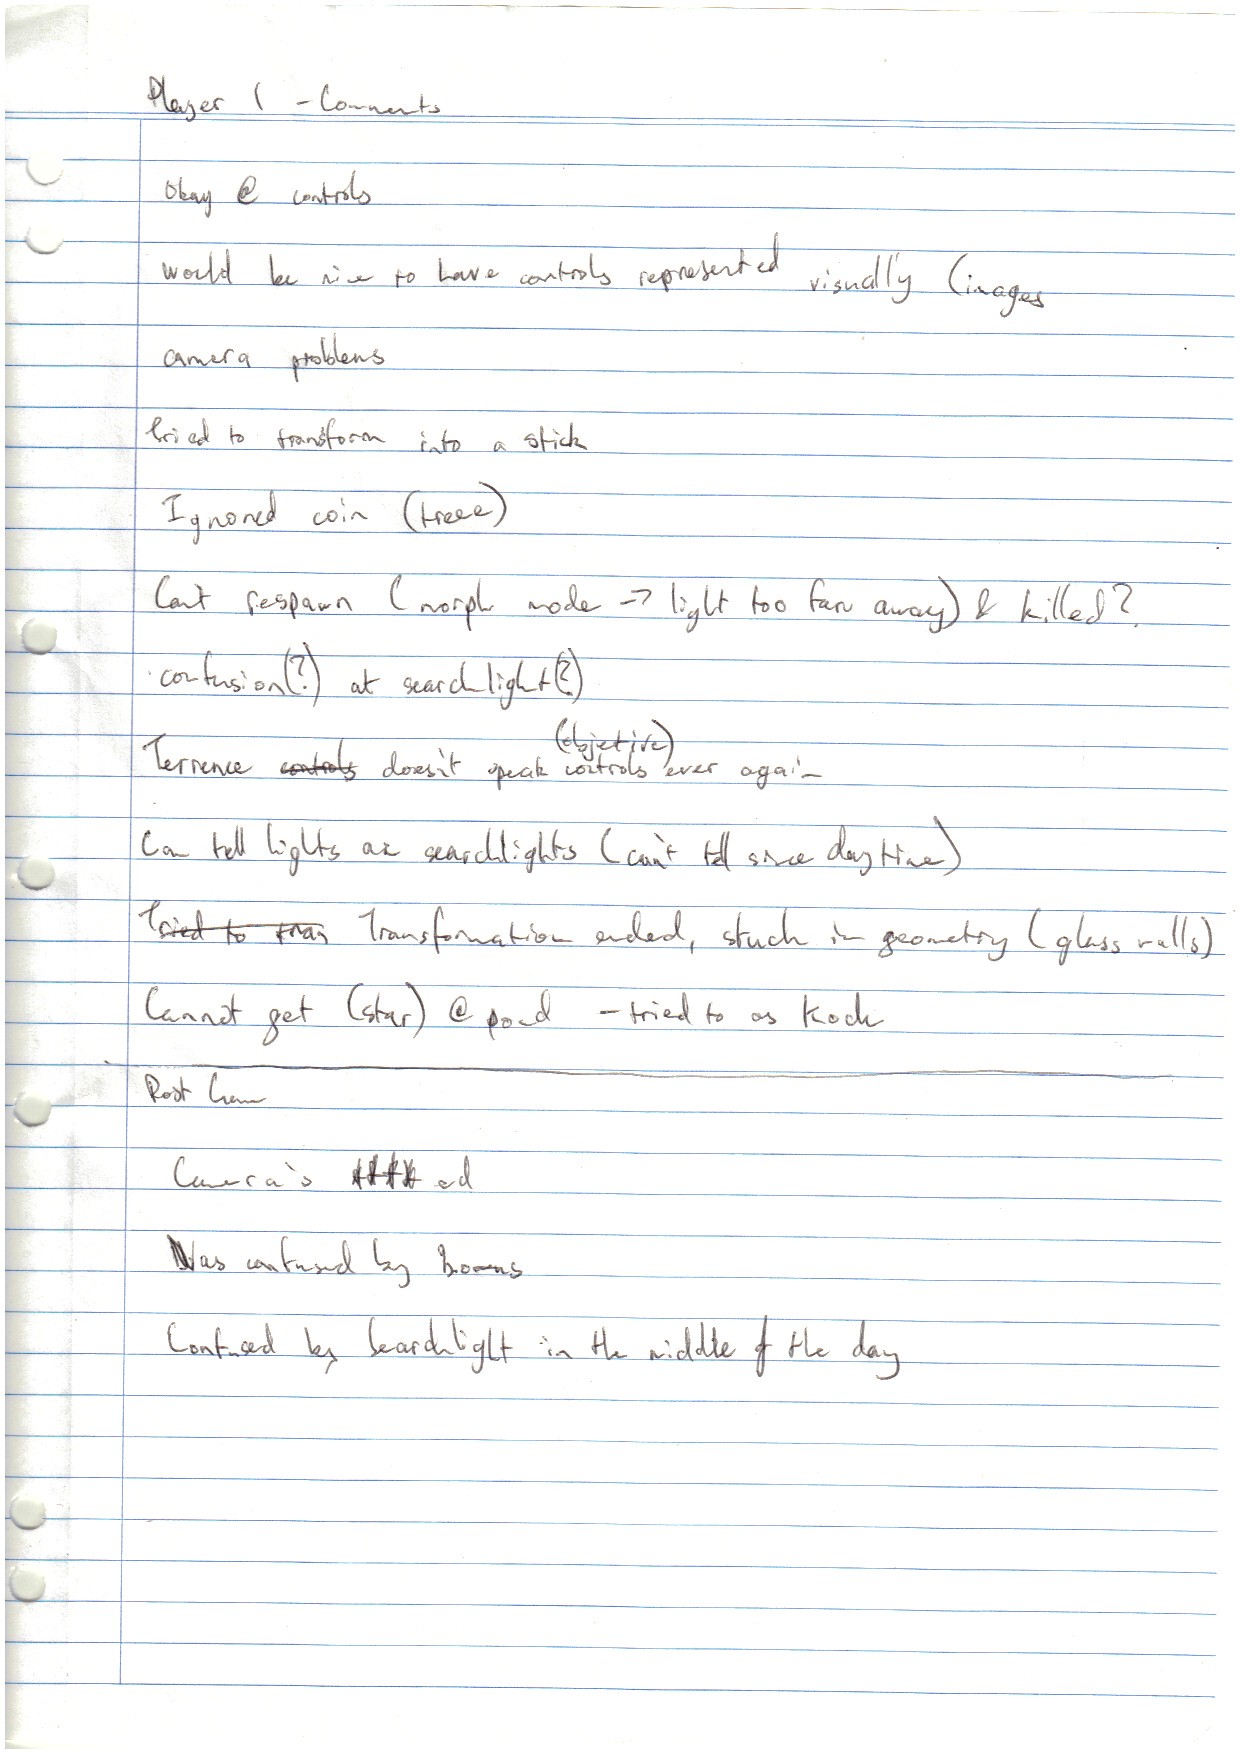 Player 1 - Comments
Okay @ controls
would be nice to have controls represented visually (images
camera problems
tried to transform into a stick
Ignored coin (treee)
Can't respawn (morph mode -> light too far away) & killed?
confusion(?) at searchlight(?)
(objetive)
Terrence controls doesn't speak controls ever again
Can tell lights are searchlights (can't tell since daytime)
Tried to tran Transformation ended, stuck in geometry (glass walls)
Cannot get (star) @ pond - tried to as Rock
Post
Camera's ****ed
Was confused by
Confused by Searchlight in the middle of the day